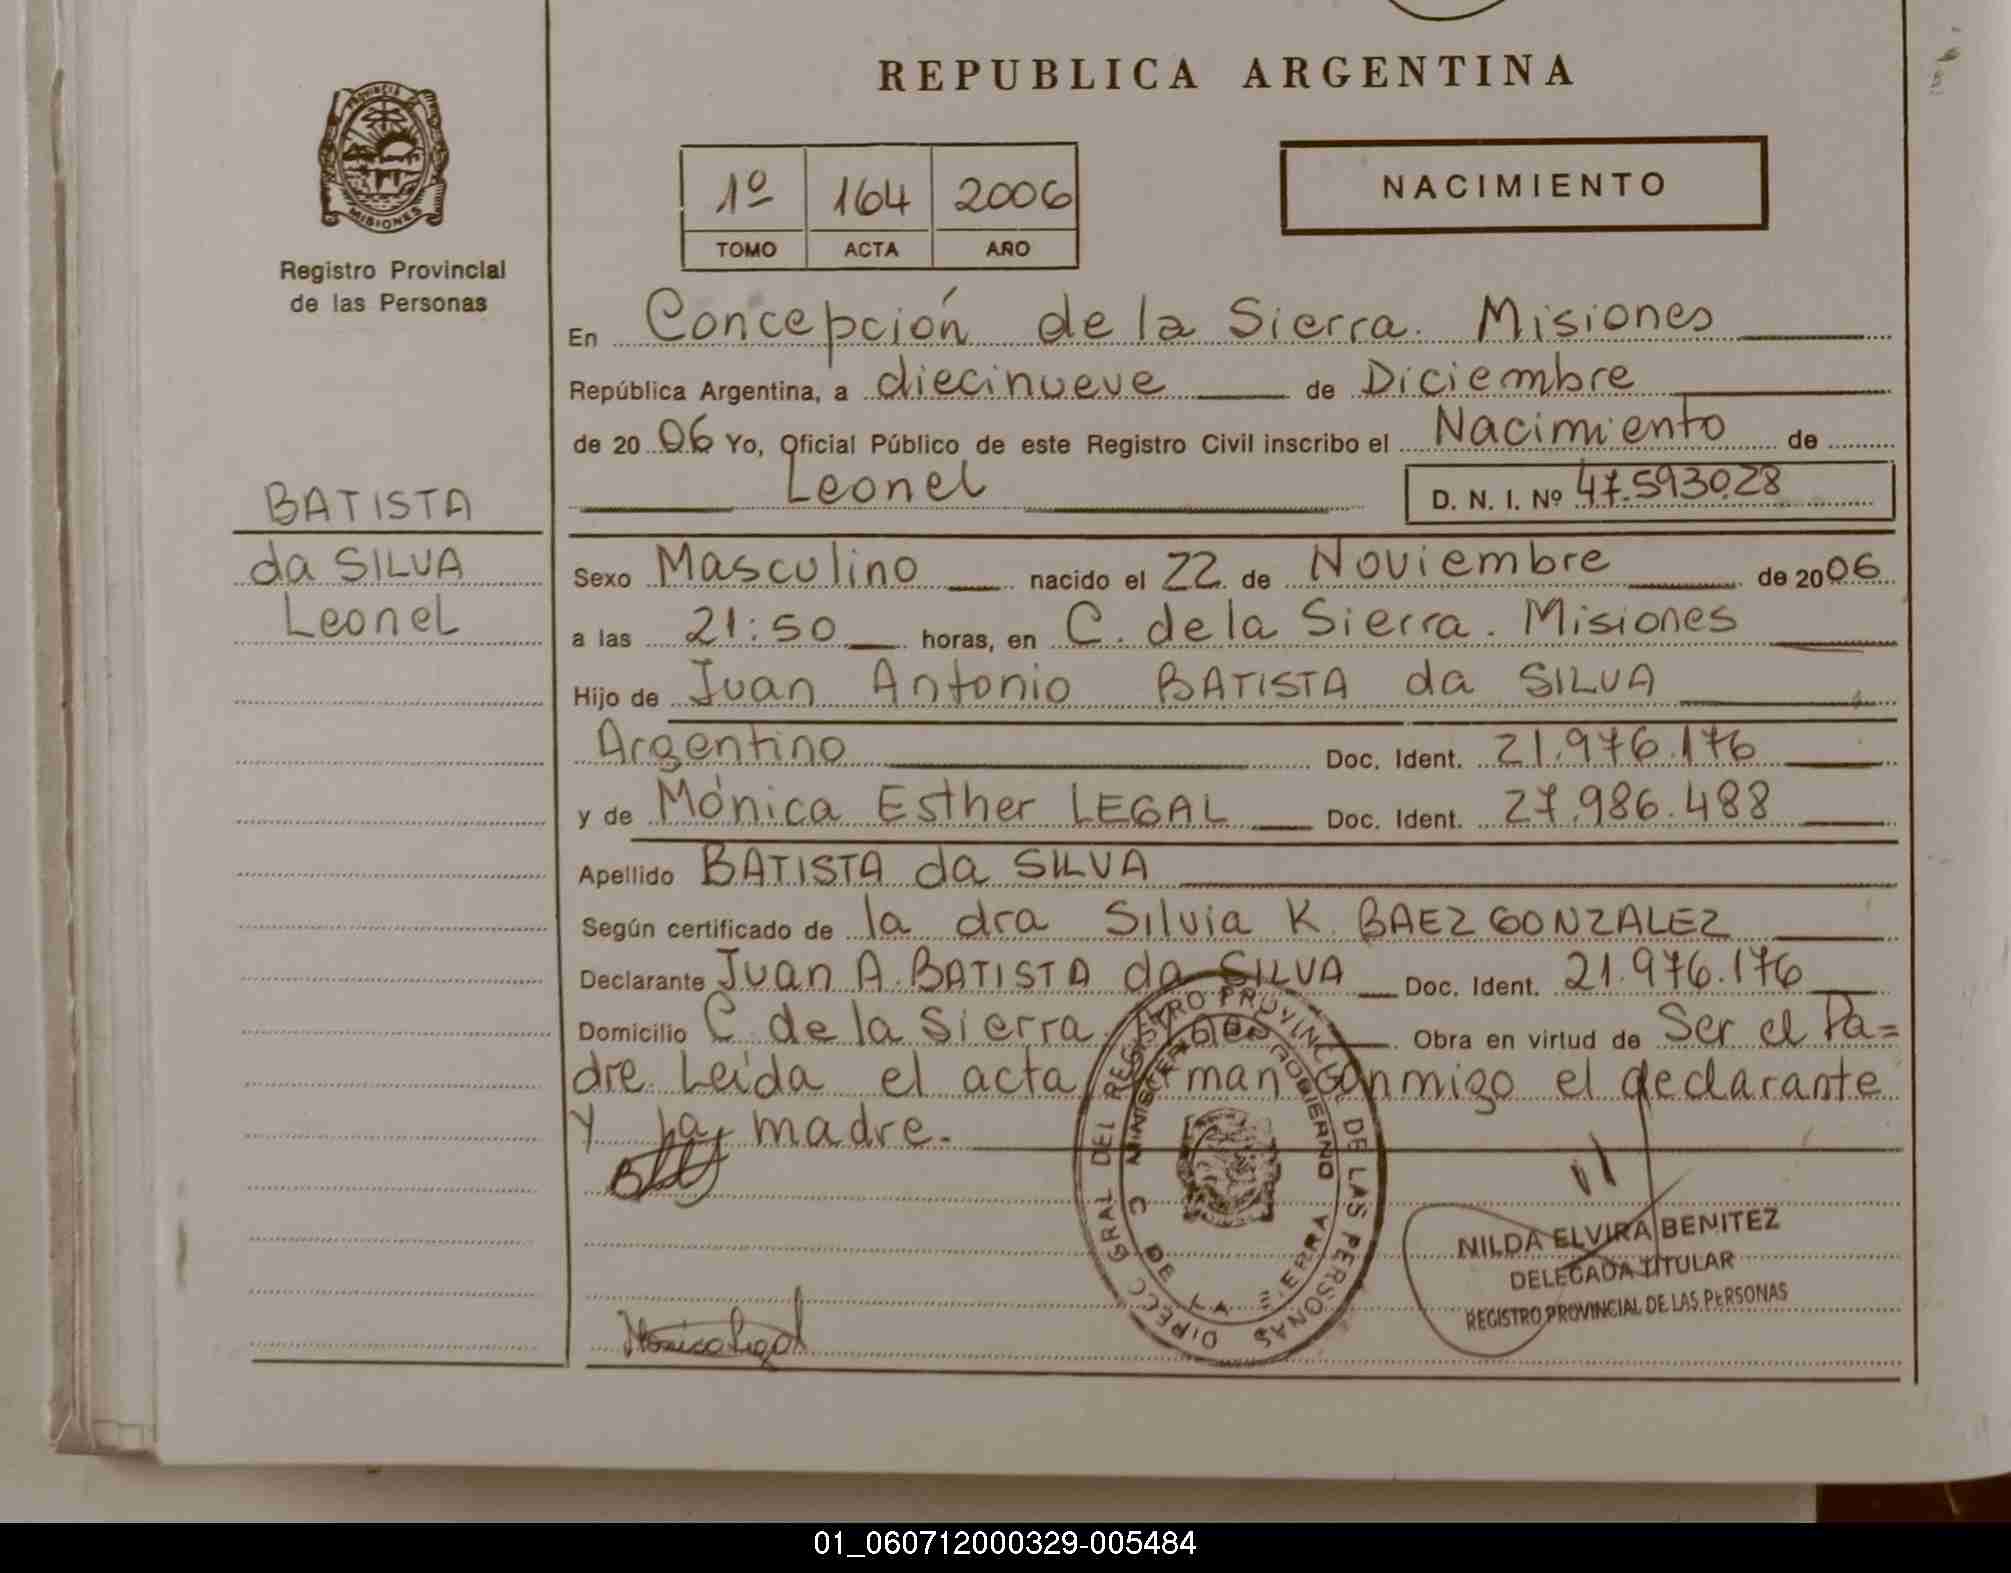 REPUBLICA ARGENTINA
PROVINCIA DE
MISIONES
Registro Provincial
de las Personas
1º 164 2006
TOMO ACTA AÑO
NACIMIENTO
En Concepción de la Sierra. Misiones
República Argentina, a diecinueve de Diciembre
de 20 06 Yo, Oficial Público de este Registro Civil inscribo el Nacimiento de
Leonel D. N. I. Nº 47.593028
BATISTA
da SILVA
Leonel
Sexo Masculino nacido el 22 de Noviembre de 2006
a las 21:50 horas, en C. de la Sierra. Misiones
Hijo de Juan Antonio BATISTA da SILVA
Argentino Doc. Ident. 21.976.176
y de Mónica Esther LEGAL Doc. Ident. 27.986.488
Apellido BATISTA da SILVA
Según certificado de la dra Silvia K. BAEZ GONZALEZ
Declarante Juan A. BATISTA da SILVA Doc. Ident. 21.976.176
Domicilio C. de la Sierra. Obra en virtud de Ser el Pa=
dre. Leída el acta firman conmigo el declarante
y la madre.
DIRECC GRAL DEL REGISTRO PROVINCIAL DE LAS PERSONAS
MINISTERIO GOBIERNO
C DE LA SIERRA
Mónica Legal
NILDA ELVIRA BENITEZ
DELEGADA TITULAR
REGISTRO PROVINCIAL DE LAS PERSONAS
01_060712000329-005484